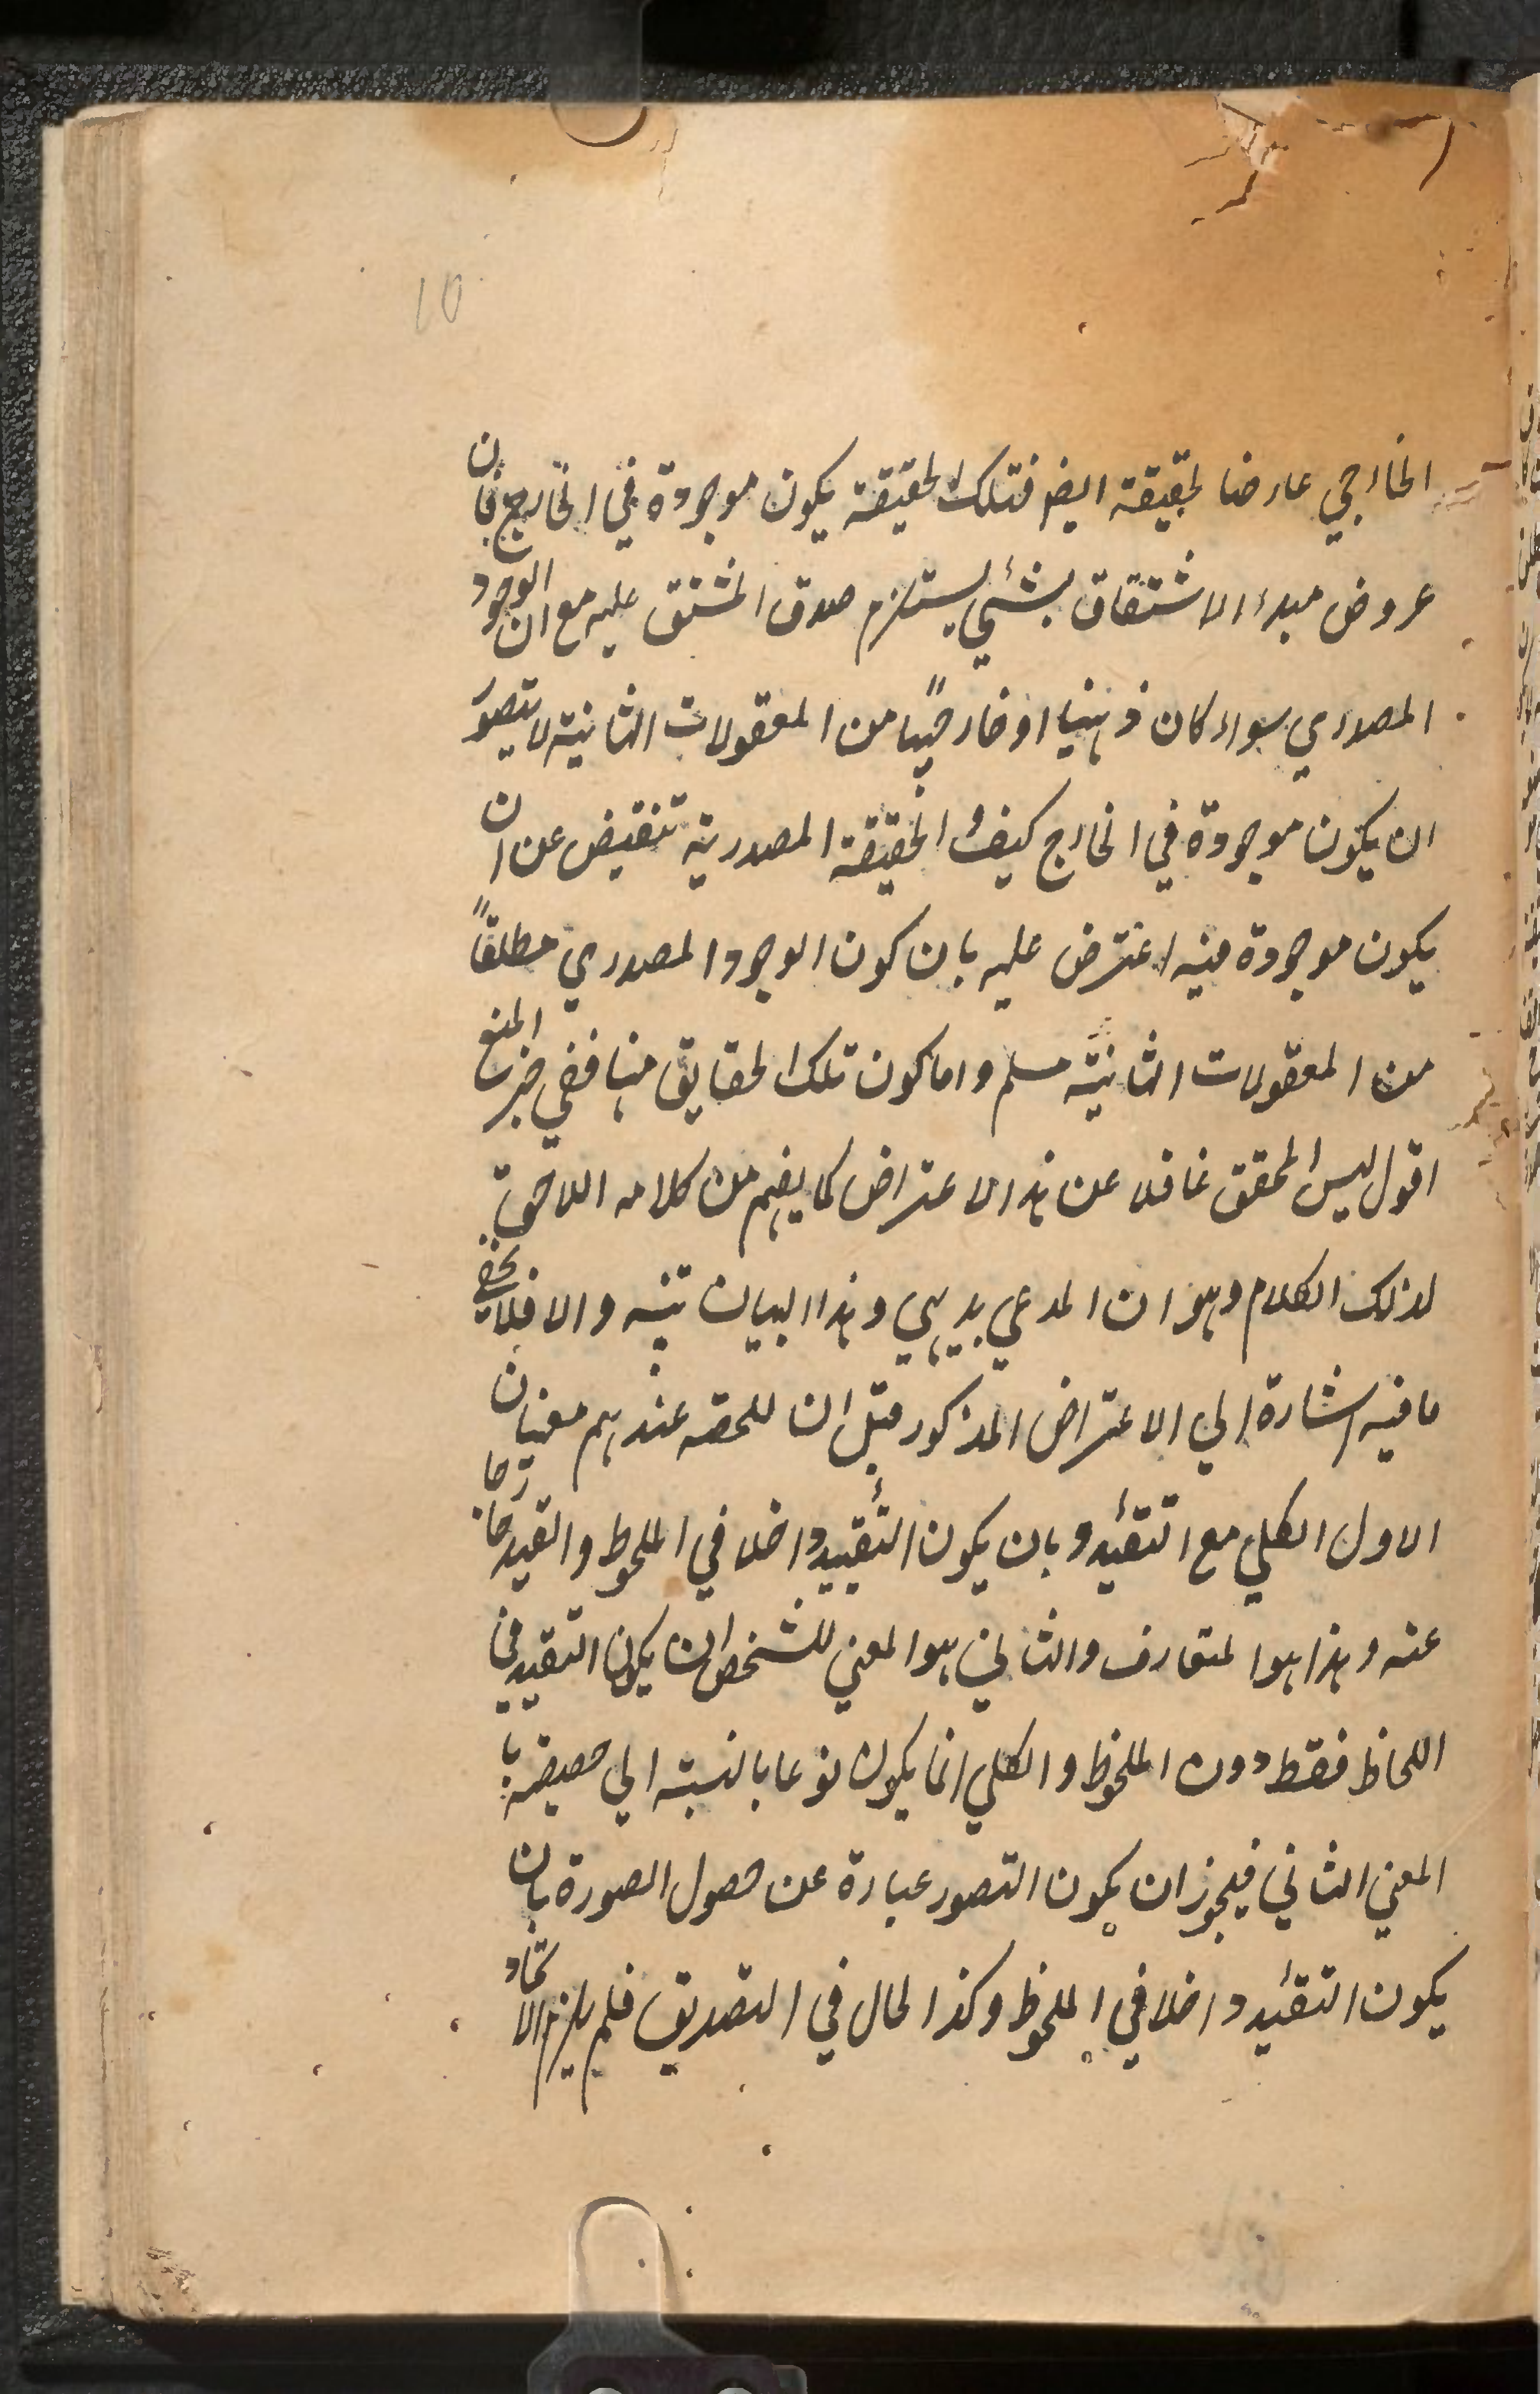 10
الخارجي عارضا لحقيقة ايضو فتلك الحقيقة يكون موجودة في الخارج فان
عروض مبدء الاشتقاق بشئي يستلزم صدق المشتق عليه مع ان الوجود
المصدري سواء كان ذهنيا او خارجيًا من المعقولات الثانية لا يتصوّر
ان يكون موجودة في الخارج كيف و الحقيقة المصدرية تنقيض عن ان
يكون موجودة فيه اعترض عليه بان كون الوجود المصدري مطلقًا
من المعقولات الثانية مسلم واما كون تلك الحقايق منها ففي خبر المنع
اقول ليس المحقق غافلا عن هذا الاعتراض كما يفهم من كلامه اللاحق
لذلك الكلام وهو ان المدعي بديهي وهذا البيان تنبيه والا فلا يخفي
ما فيه اشارة الي الاعتراض المذكور قيل ان للحصه عندهم معنيان
الاول الكلي مع التقئيد و بان يكون التقييد داخلا في الملحوظ والقيد خارجا
عنه وهذا هوا لمتعارف والثاني هوا لمعني للشخص ان يكون التقييد في
اللحاظ فقط دون الملحوظ والكلي انما يكون نوعا بالنسبة الي حصصه با
المعني الثاني فيجوز ان يكون التصور عبارة عن حصول الصورة بان
يكون التقئيد داخلا في الملحوظ وكذا لحال في التصديق فلم يلزم الاتحاد